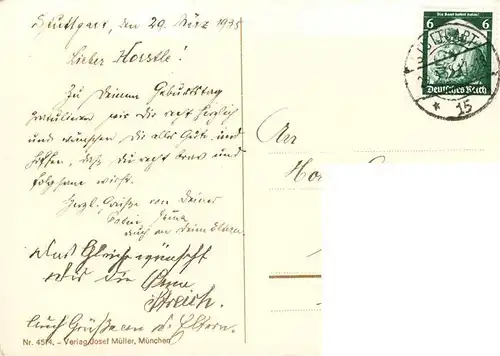 Stuttgart, den 29. März 1935
Lieber Horstle!
Zu Deinem Geburtstag
gratulieren wir Dir recht herzlich
und wünschen Dir alles Gute und
hoffen, daß Du recht brav und
folgsam wirst.
Herzl. Grüße von Deiner
auch an Deine Eltern.
Das Gleiche wünscht
Dir die
Auch Grüße an d. Eltern.
Nr. 4514. – Verlag Josef Müller, München
6 6
Deutsches Reich
STUTTGART
* 15
An